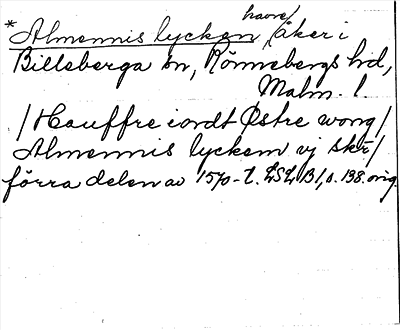 *Almennis lycken havre/ åker i
Billeberga sn, Rönnebergs hd,
Malm. l.
/Hauffre iordt Østre wong/
Almennis lyckem vj skr/
förra delen av 1570-t. LSLB1, s. 138. orig.